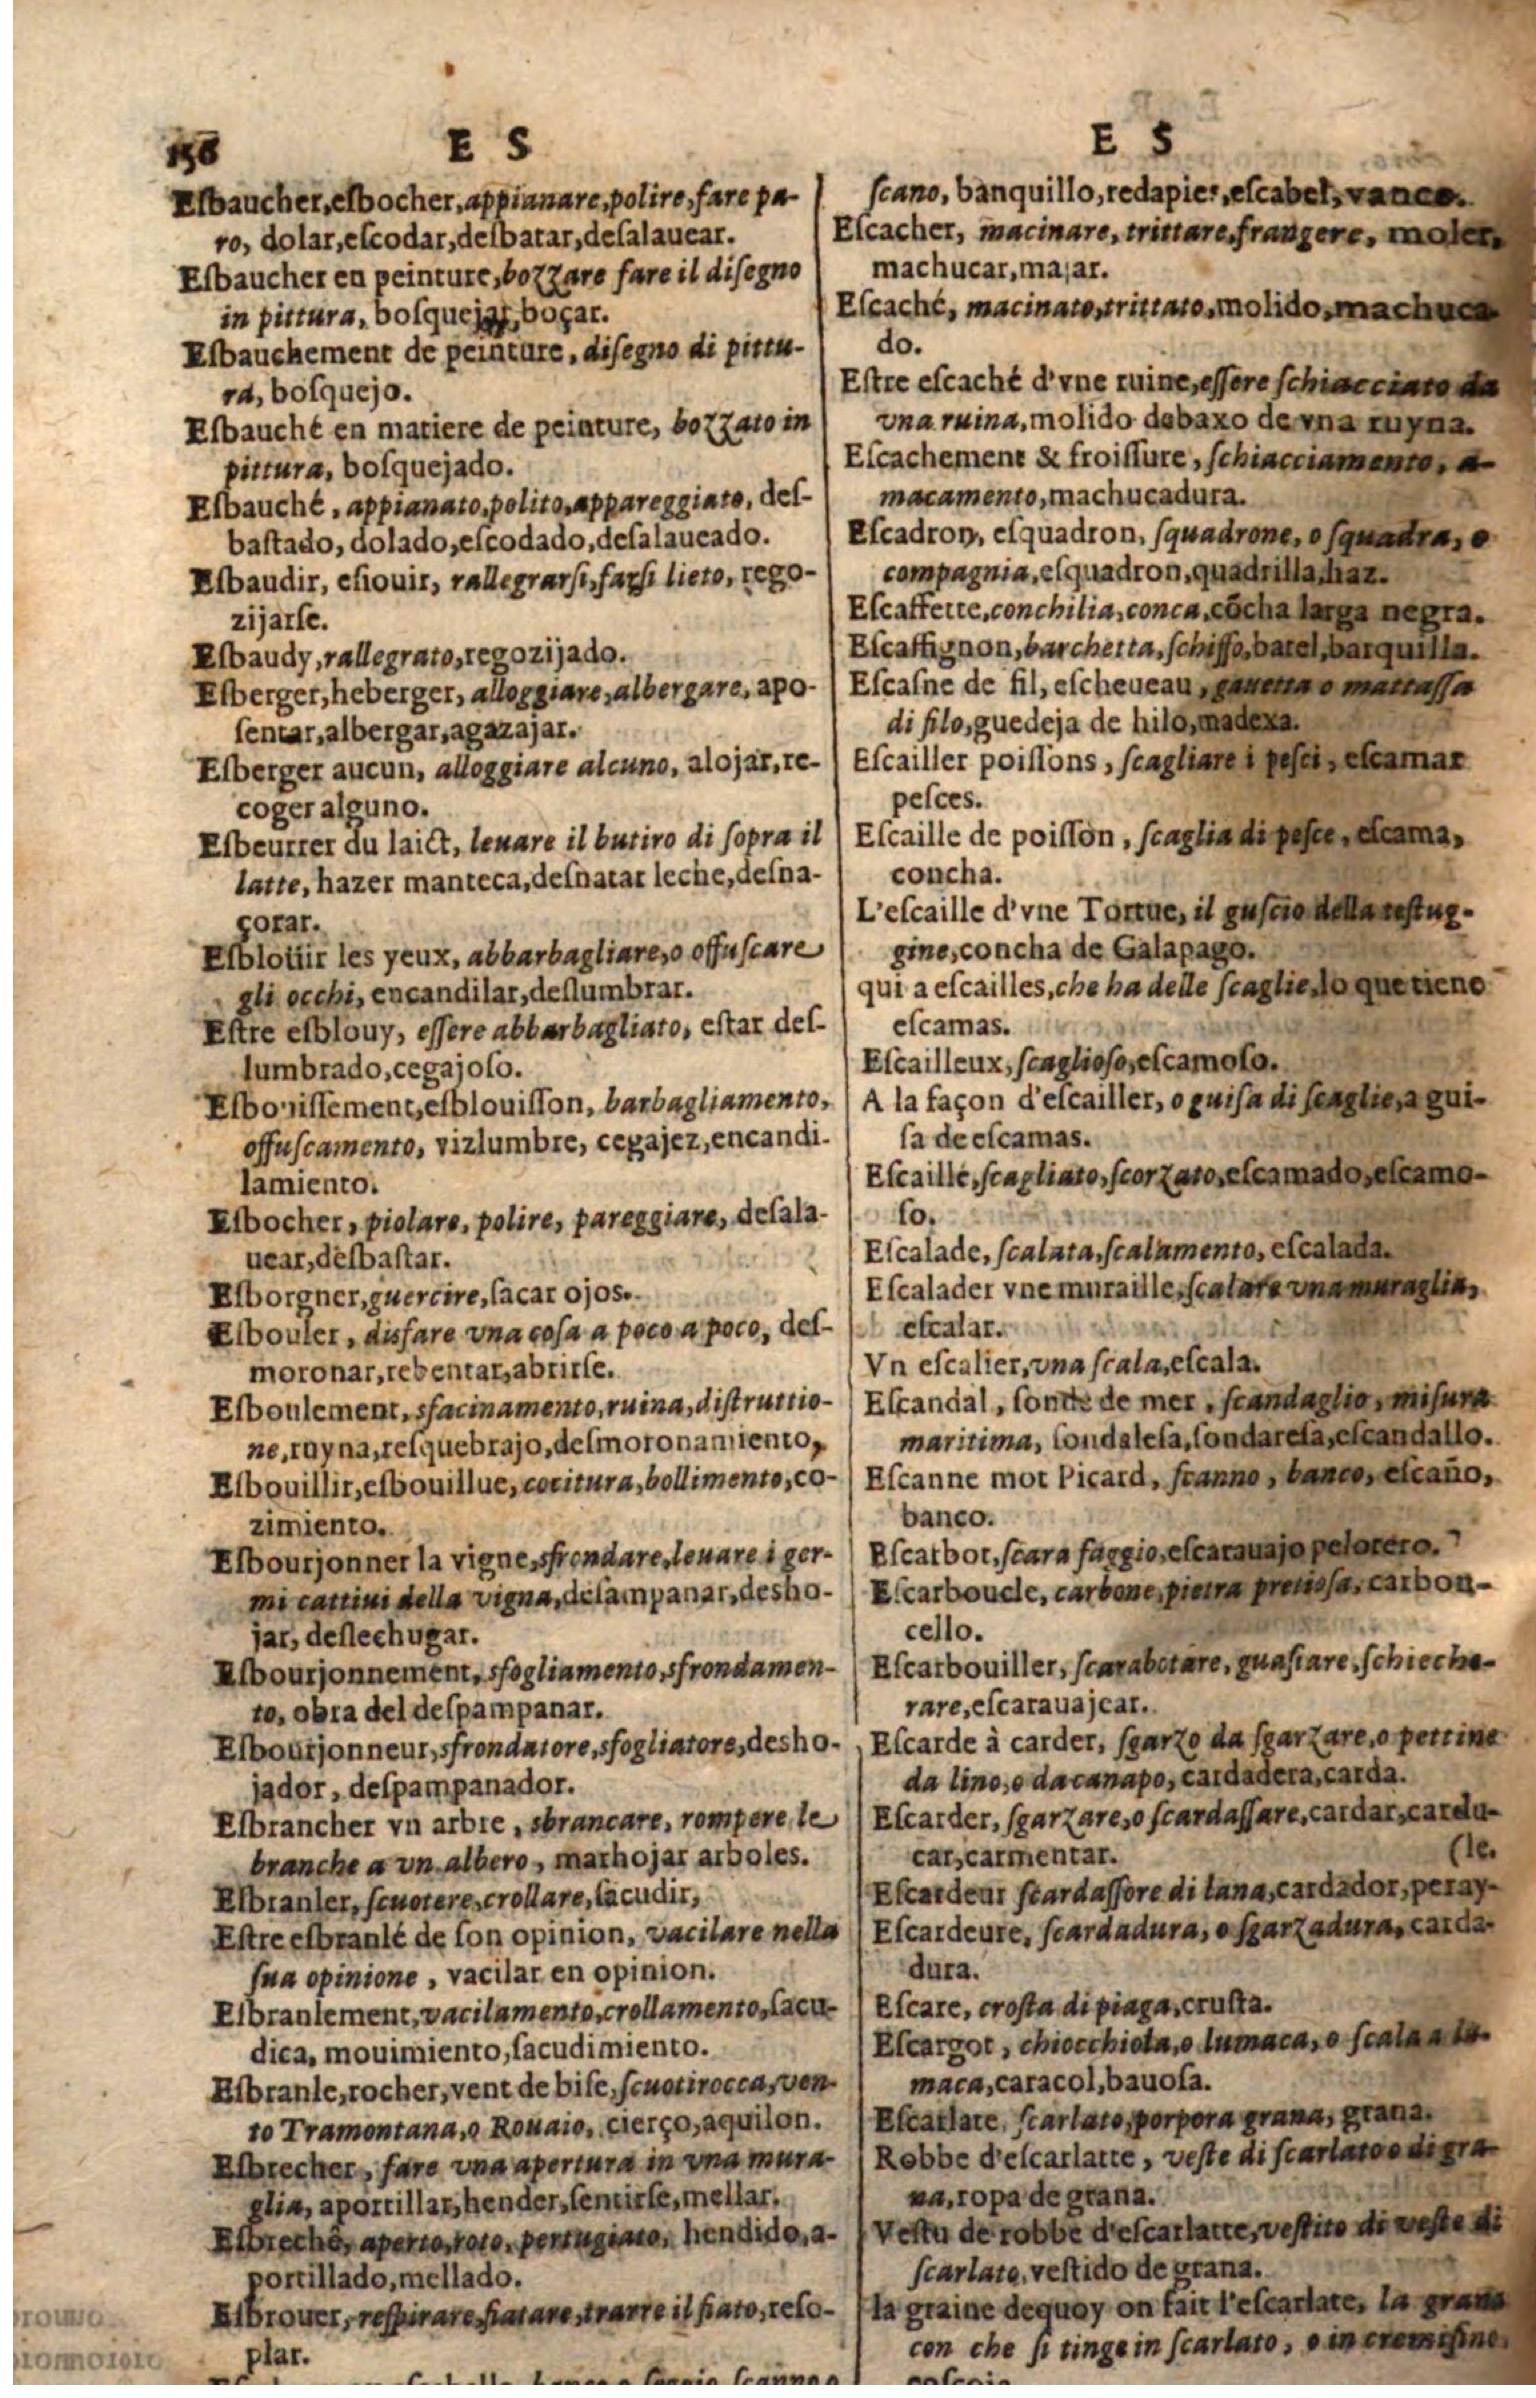 156
E S
Eſbaucher,eſbocher,appianare,polire,fare pa-
ro, dolar,eſcodar,deſbatar,deſalauear.
Eſbaucher en peinture,bozzare fare il diſegno
in pittura, boſquejar,boçar.
Eſbauchement de peinture, diſegno di pittu-
ra, boſquejo.
Eſbauché en matiere de peinture, bozzato in
pittura, boſquejado.
Eſbauché, appianato,polito,appareggiato, deſ-
baſtado, dolado,eſcodado,deſalaueado.
Eſbaudir, eſiouir, rallegrarſi,farſi lieto, rego-
zijarſe.
Eſbaudy,rallegrato,regozijado.
Eſberger,heberger, alloggiare,albergare, apo-
ſentar,albergar,agazajar.
Eſberger aucun, alloggiare alcuno, alojar,re-
coger alguno.
Eſbeurrer du laict, leuare il butiro di ſopra il
latte, hazer manteca,deſnatar leche,deſna-
çorar.
Eſbloüir les yeux, abbarbagliare,o offuſcare
gli occhi, encandilar,deſlumbrar.
Eſtre eſblouy, eſſere abbarbagliato, eſtar deſ-
lumbrado,cegajoſo.
Eſbouiſſement,eſblouiſſon, barbagliamento,
offuſcamento, vizlumbre, cegajez,encandi-
lamiento.
Eſbocher, piolare, polire, pareggiare, deſala-
uear,deſbaſtar.
Eſborgner,guercire,ſacar ojos.
Eſbouler, disfare vna coſa a poco a poco, deſ-
moronar,rebentar,abrirſe.
Eſboulement, sfacinamento,ruina,diſtruttio-
ne,ruyna,reſquebrajo,deſmoronamiento,
Eſbouillir,eſbouillue, cocitura,bollimento,co-
zimiento.
Eſbourjonner la vigne,sfrondare,leuare i ger-
mi cattiui della vigna,deſampanar,desho-
jar, deſlechugar.
Eſbourjonnement, sfogliamento,sfrondamen-
to, obra del deſpampanar.
Eſbourjonneur,sfrondatore,sfogliatore,desho-
jador, deſpampanador.
Eſbrancher vn arbre, sbrancare, rompere le
branche a vn albero, marhojar arboles.
Eſbranler, ſcuotere,crollare,ſacudir,
Eſtre eſbranlé de ſon opinion, vacilare nella
ſua opinione, vacilar en opinion.
Eſbranlement,vacilamento,crollamento,ſacu-
dica, mouimiento,ſacudimiento.
Eſbranle,rocher,vent de biſe,ſcuotirocca,ven-
to Tramontana,o Rouaio, cierço,aquilon.
Eſbrecher, fare vna apertura in vna mura-
glia, aportillar,hender,ſentirſe,mellar.
Eſbreché, aperto,roto, pertugiato, hendido,a-
portillado,mellado.
Eſbrouer, reſpirare,fiatare,trarre il fiato,reſo-
plar.
E S
ſcano, banquillo,redapier,eſcabel,vanco.
Eſcacher, macinare, trittare,frangere, moler,
machucar,majar.
Eſcaché, macinato,trittato,molido,machuca-
do.
Eſtre eſcaché d'vne ruine,eſſere ſchiacciato da
vna ruina,molido debaxo de vna ruyna.
Eſcachement & froiſſure, ſchiacciamento, a-
macamento,machucadura.
Eſcadron, eſquadron, ſquadrone, o ſquadra, o
compagnia,eſquadron,quadrilla,haz.
Eſcaffette,conchilia,conca,cõcha larga negra.
Eſcaffignon,barchetta,ſchiffo,batel,barquilla.
Eſcaſne de fil, eſcheueau, gauetta o mattaſſa
di filo,guedeja de hilo,madexa.
Eſcailler poiſſons, ſcagliare i peſci, eſcamar
peſces.
Eſcaille de poiſſon, ſcaglia di peſce, eſcama,
concha.
L'eſcaille d'vne Tortue, il guſcio della teſtug-
gine,concha de Galapago.
qui a eſcailles,che ha delle ſcaglie,lo que tiene
eſcamas.
Eſcailleux,ſcaglioſo,eſcamoſo.
A la façon d'eſcailler, o guiſa di ſcaglie,a gui-
ſa de eſcamas.
Eſcaillé,ſcagliato,ſcorzato,eſcamado,eſcamo-
ſo.
Eſcalade, ſcalata,ſcalamento, eſcalada.
Eſcalader vne muraille,ſcalare vna muraglia,
eſcalar.
Vn eſcalier,vna ſcala,eſcala.
Eſcandal, ſonde de mer, ſcandaglio, miſura
maritima, ſondaleſa,ſondareſa,eſcandallo.
Eſcanne mot Picard, ſcanno, banco, eſcaño,
banco.
Eſcarbot,ſcara faggio,eſcarauajo pelotero.
Eſcarboucle, carbone,pietra pretioſa, carbon-
cello.
Eſcarbouiller, ſcarabotare, guaſtare,ſchieche-
rare,eſcarauajear.
Eſcarde à carder, ſgarzo da ſgarzare,o pettine
da lino,o da canapo, cardadera,carda.
Eſcarder, ſgarzare,o ſcardaſſare,cardar,cardu-
car,carmentar.
(le.
Eſcardeur ſcardaſſore di lana,cardador,peray-
Eſcardeure, ſcardadura, o ſgarzadura, carda-
dura.
Eſcare, croſta di piaga,cruſta.
Eſcargot, chiocchiola,o lumaca, o ſcala a lu-
maca,caracol,bauoſa.
Eſcarlate, ſcarlato,porpora grana, grana.
Robbe d'eſcarlatte, veſte di ſcarlato o di gra-
na,ropa de grana.
Veſtu de robbe d'eſcarlatte,veſtito di veſte di
ſcarlato,veſtido de grana.
la graine dequoy on fait l'eſcarlate, la grana
con che ſi tinge in ſcarlato, o in cremiſino,